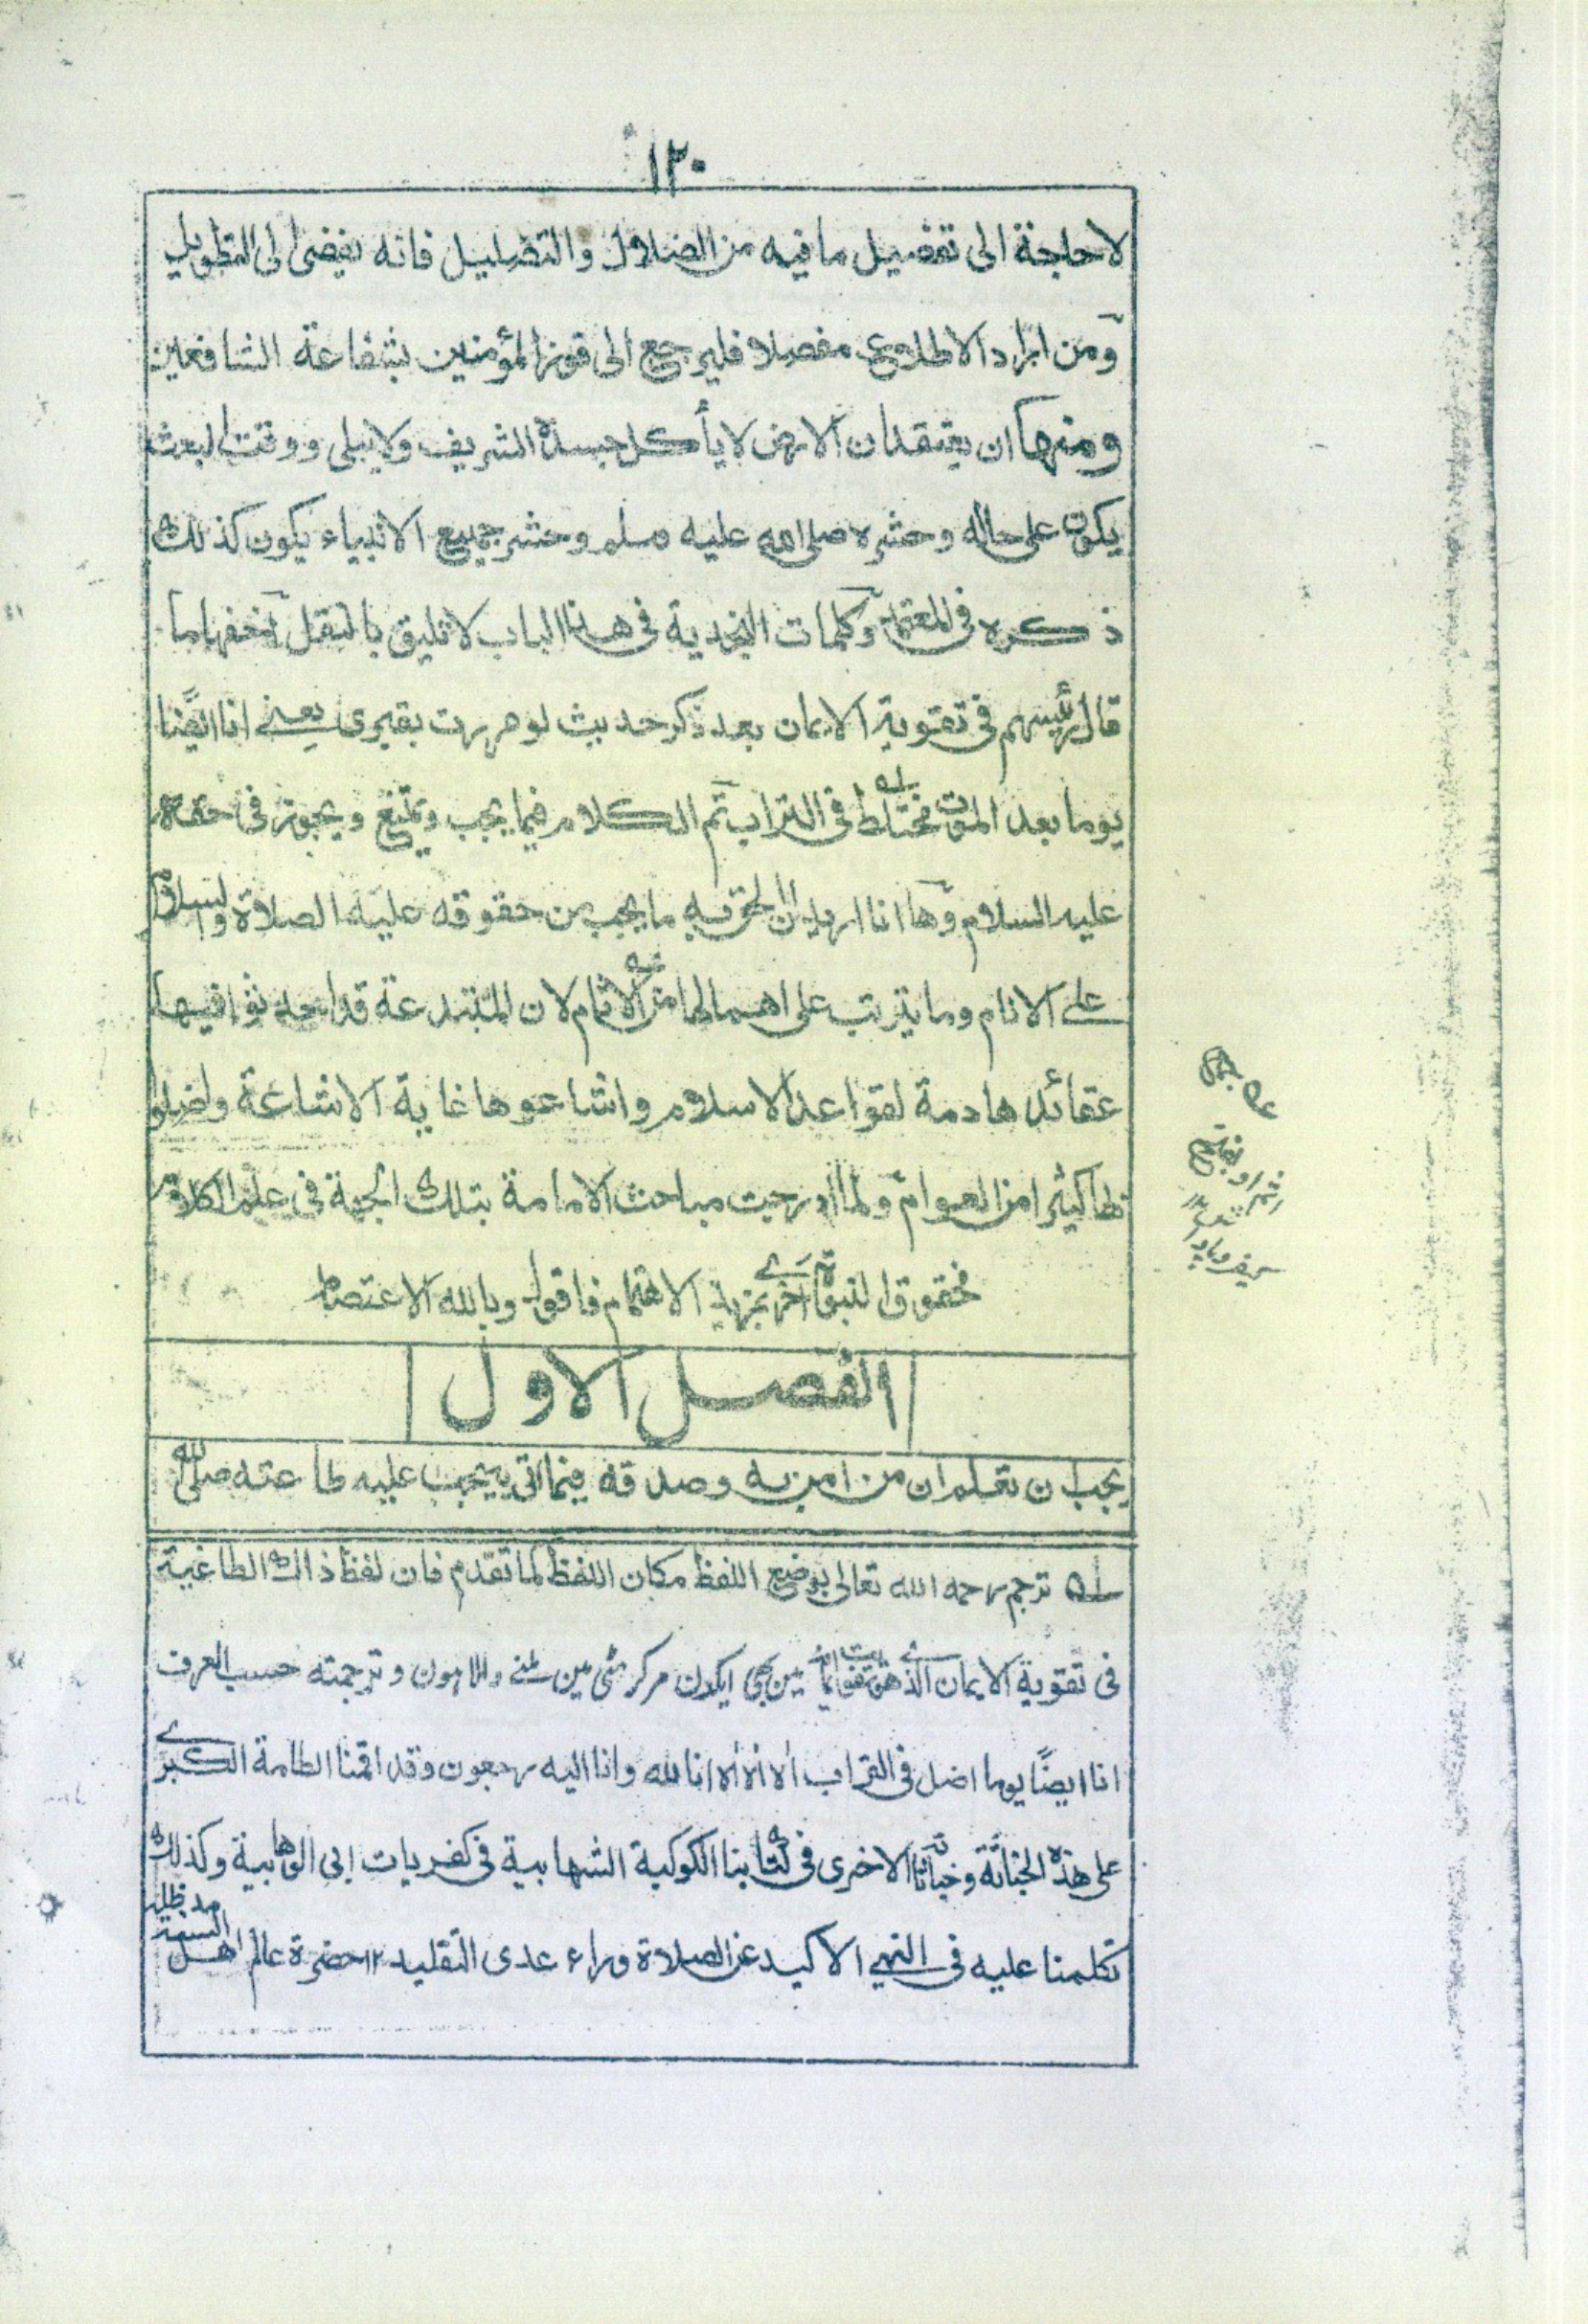 ١٢٠
لاحاجة الى تفصيل ما فيه من الضلال والتضليل فانه يفضى الى التطويل
ومن اراد الاطلاع مفصلا فليرجع الى فوز المؤمنين بشفاعة الشافعين
ومنها ان يعتقد ان الارض لا يأكل جسده الشريف ولا يبلى ووقت البعث
يكون على حاله وحشره صلى الله عليه وسلم وحشر جميع الانبياء يكون كذلك
ذكره فى المعتمد وكلمات النجدية فى هذا الباب لا تليق بالنقل اخفها ما
قال رئيسهم فى تقوية الايمان بعد ذكر حديث لو مررت بقبرى يعنى انا ايضًا
يوما بعد الموت مختلط فى التراب له تم الكلام فيما يجب ويمتنع ويجوز فى حقه
عليه السلام وها انا اريد ان الحق به ما يجب من حقوقه عليه الصلاة والسلام
على الانام وما يترتب على اهمالها من الاثام لان المبتدعة قد احدثوا فيها
عقائد هادمة لقواعد الاسلام واشاعوها غاية الاشاعة واضلوا
كثيرا من العوام ولما ادرجت مباحث الامامة بتلك الجهة فى علم الكلام
فحقوق النبوة احرى بمزيد الاهتمام فاقول وبالله الاعتصام
الفصل الاول
يجب ان تعلم ان من امن به وصدقه فيما اتى به يجب عليه طاعته صلى الله
له ترجم رحمه الله تعالى بوضع اللفظ مكان اللفظ كما تقدم فان لفظ ذاك الطاغية
فى تقوية الايمان الذى هو تفويت الايمان مين بهى ايكدن مركر مٹى مين ملنے والا ہون وترجمته حسب العرف
انا ايضًا يوما اضل فى التراب الا الا الا انا لله وانا اليه رجعون وقد اقمنا الطامة الكبرى
على هذه الخباثة وخباثاته الاخرى فى كتابنا الكوكبة الشهابية فى كفريات ابى الوهابية وكذلك
تكلمنا عليه فى النهى الاكيد عن الصلاة وراء عدى التقليد ١٢ حضرة عالم اهل السنة مد ظله